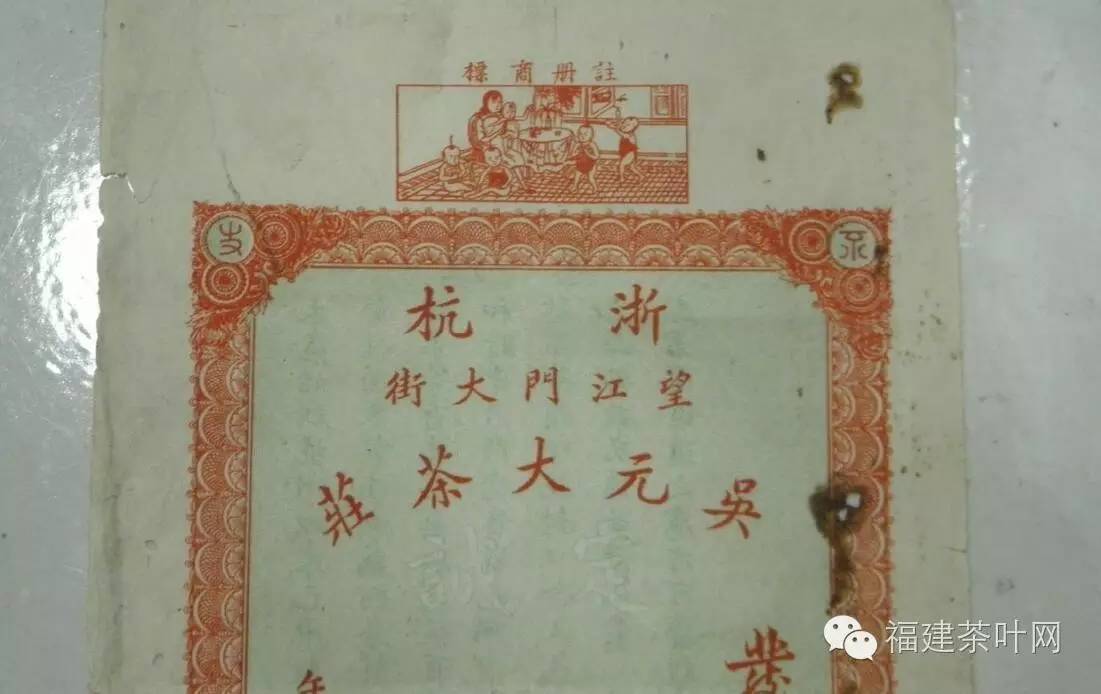 註册商標
浙杭
望江門大街
吳元大茶莊
福建茶叶网